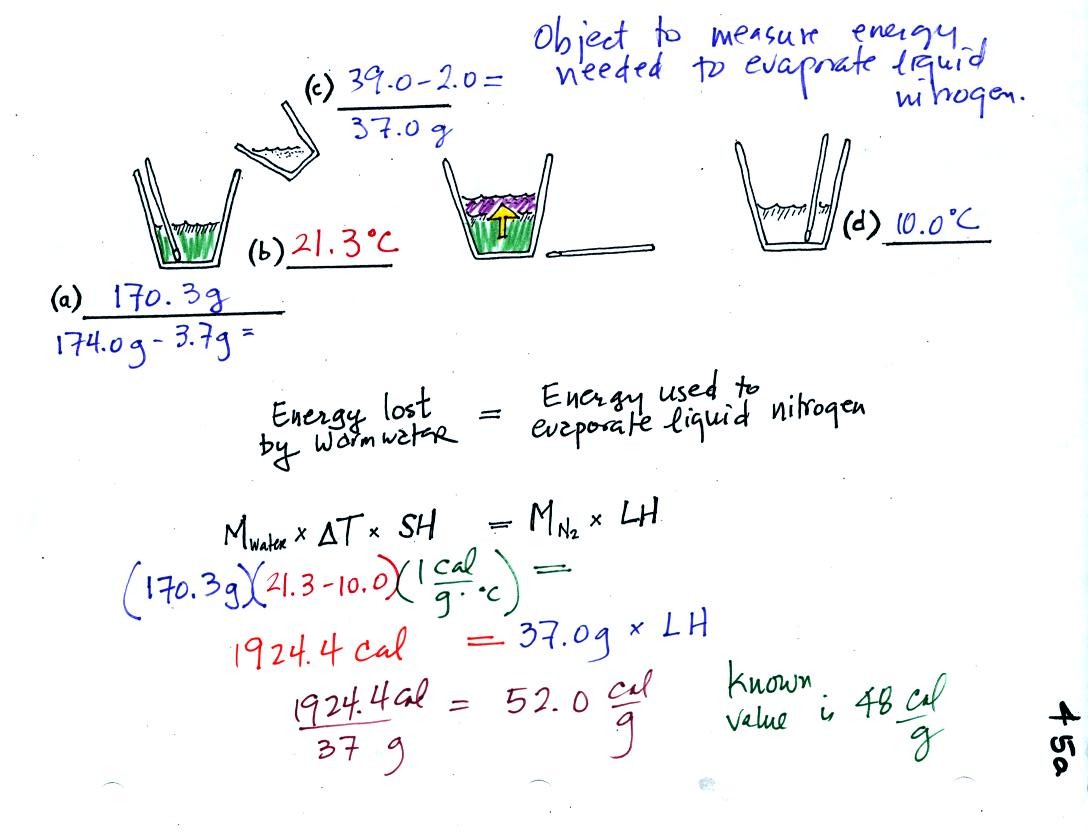 Object to measure energy
needed to evaporate liquid
nitrogen.
(c) 39.0-2.0=
37.0 g
(b) 21.3°C
(d) 10.0°C
(a) 170.3g
174.0g - 3.7g =
Energy lost = Energy used to
by warm water evaporate liquid nitrogen
M water x ΔT x SH = M N2 x LH
(170.3g)(21.3-10.0)(1 cal/g·°C) =
1924.4 cal = 37.0g x LH
1924.4 cal / 37 g = 52.0 cal/g
Known
value is 48 cal/g
45a